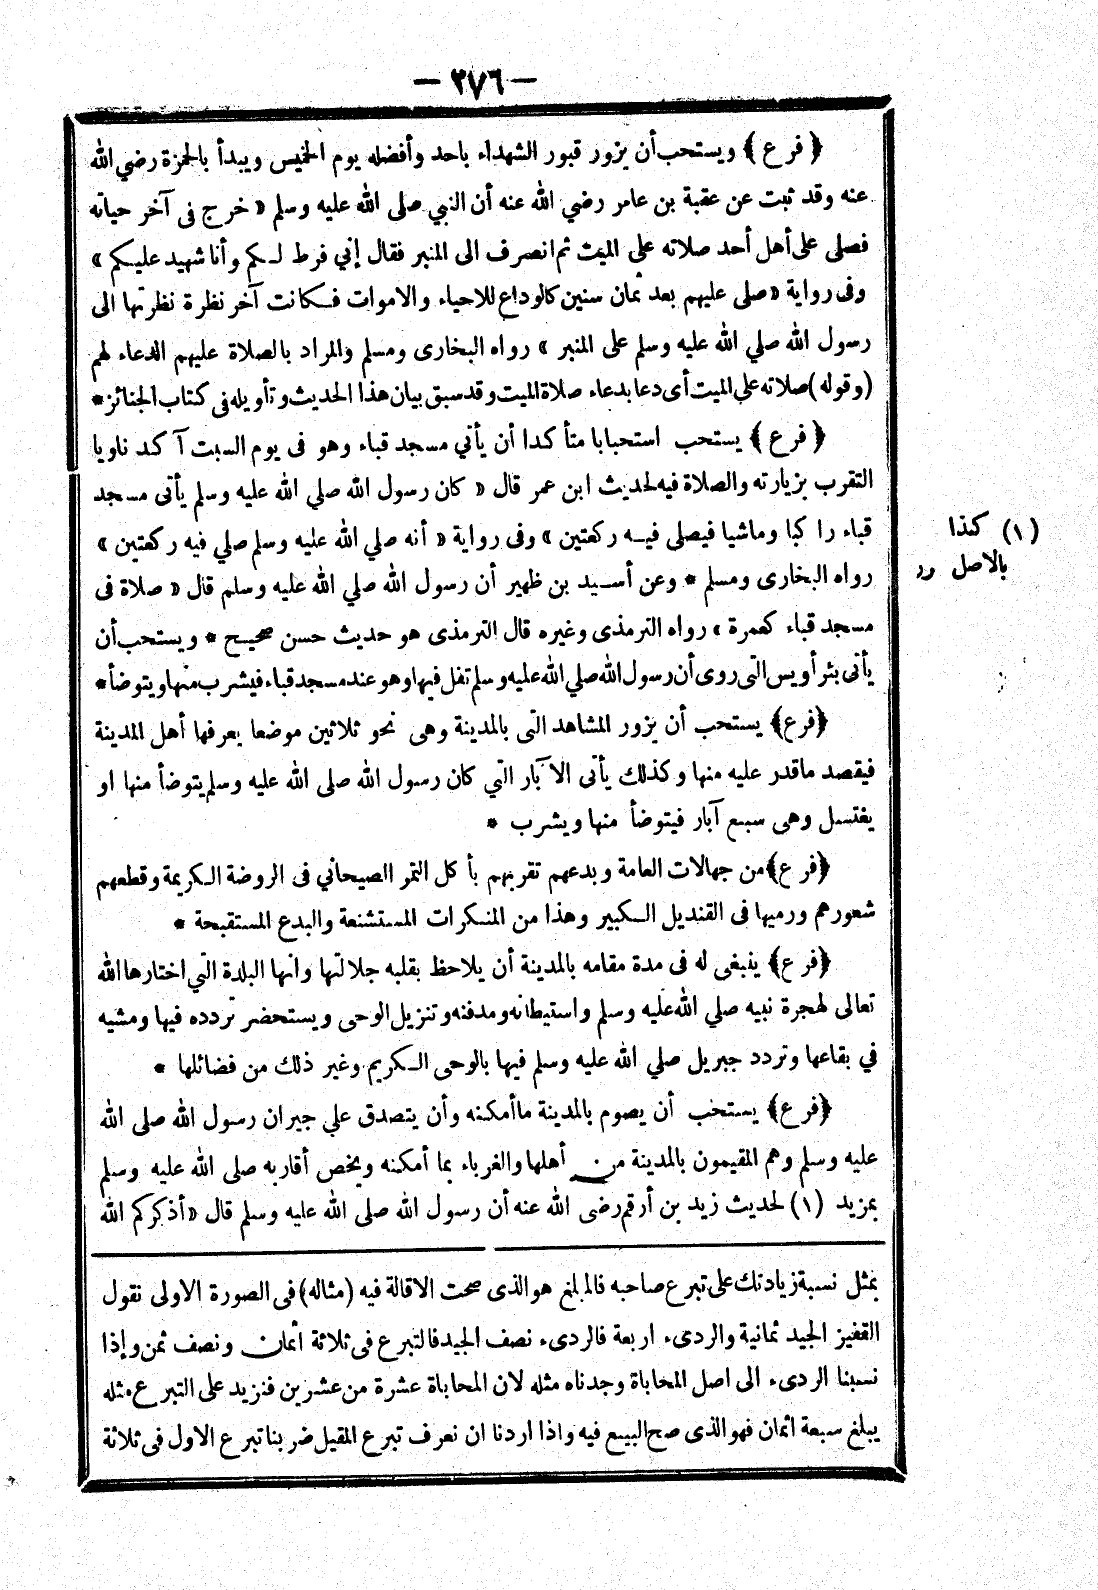 — ٢٧٦ —
﴿ فرع ﴾ ويستحب أن يزور قبور الشهداء باحد وأفضله يوم الخميس ويبدأ بالحمزة رضي الله
عنه وقد ثبت عن عقبة بن عامر رضي الله عنه أن النبي صلى الله عليه وسلم « خرج فى آخر حياته
فصلى على أهل أحد صلاته على الميت ثم انصرف الى المنبر فقال إني فرط لكم وأنا شهيد عليكم »
وفى رواية « صلى عليهم بعد ثمان سنين كالوداع للاحياء والاموات فكانت آخر نظرة نظرتها الى
رسول الله صلي الله عليه وسلم على المنبر » رواه البخارى ومسلم والمراد بالصلاة عليهم الدعاء لهم
(وقوله) صلاته علي الميت أى دعا بدعاء صلاة الميت وقد سبق بيان هذا الحديث وتأويله فى كتاب الجنائز *
﴿ فرع ﴾ يستحب استحبابا متأكدا أن يأتي مسجد قباء وهو فى يوم السبت آكد ناويا
التقرب بزيارته والصلاة فيه لحديث ابن عمر قال « كان رسول الله صلي الله عليه وسلم يأتى مسجد
قباء راكبا وماشيا فيصلى فيه ركعتين » وفى رواية « أنه صلي الله عليه وسلم صلي فيه ركعتين »
رواه البخارى ومسلم * وعن أسيد بن ظهير أن رسول الله صلي الله عليه وسلم قال « صلاة فى
مسجد قباء كعمرة » رواه الترمذى وغيره قال الترمذى هو حديث حسن صحيح * ويستحب أن
يأتى بئر أويس التى روى أن رسول الله صلي الله عليه وسلم تفل فيها وهو عند مسجد قباء فيشرب منها ويتوضأ *
﴿فرع﴾ يستحب أن يزور المشاهد التى بالمدينة وهى نحو ثلاثين موضعا يعرفها أهل المدينة
فيقصد ماقدر عليه منها وكذلك يأتى الآبار التي كان رسول الله صلى الله عليه وسلم يتوضأ منها او
يغتسل وهى سبع آبار فيتوضأ منها ويشرب *
﴿فرع﴾ من جهالات العامة وبدعهم تقربهم بأكل التمر الصيحاني فى الروضة الكريمة وقطعهم
شعورهم ورميها فى القنديل الكبير وهذا من المنكرات المستشنعة والبدع المستقبحة *
﴿فرع﴾ ينبغى له فى مدة مقامه بالمدينة أن يلاحظ بقلبه جلالتها وانها البلدة التي اختارها الله
تعالى لهجرة نبيه صلي الله عليه وسلم واستيطانه ومدفنه وتنزيل الوحى ويستحضر تردده فيها ومشيه
في بقاعها وتردد جبريل صلي الله عليه وسلم فيها بالوحى الكريم وغير ذلك من فضائلها *
﴿فرع﴾ يستحب أن يصوم بالمدينة ماأمكنه وأن يتصدق علي جيران رسول الله صلى الله
عليه وسلم وهم المقيمون بالمدينة من أهلها والغرباء بما أمكنه ويخص أقاربه صلى الله عليه وسلم
بمزيد (١) لحديث زيد بن أرقم رضى الله عنه أن رسول الله صلى الله عليه وسلم قال « أذكركم الله
(١) كذا
بالاصل رر
بمثل نسبة زيادتك على تبرع صاحبه فالمبلغ هو الذى صحت الاقالة فيه (مثاله) فى الصورة الاولى نقول
القفيز الجيد ثمانية والردىء اربعة فالردىء نصف الجيد فالتبرع فى ثلاثة أثمان ونصف ثمن وإذا
نسبنا الردىء الى اصل المحاباة وجدناه مثله لان المحاباة عشرة من عشرين فنزيد على التبرع مثله
يبلغ سبعة اثمان فهو الذى صح البيع فيه واذا اردنا ان نعرف تبرع المقيل ضربنا تبرع الاول فى ثلاثة